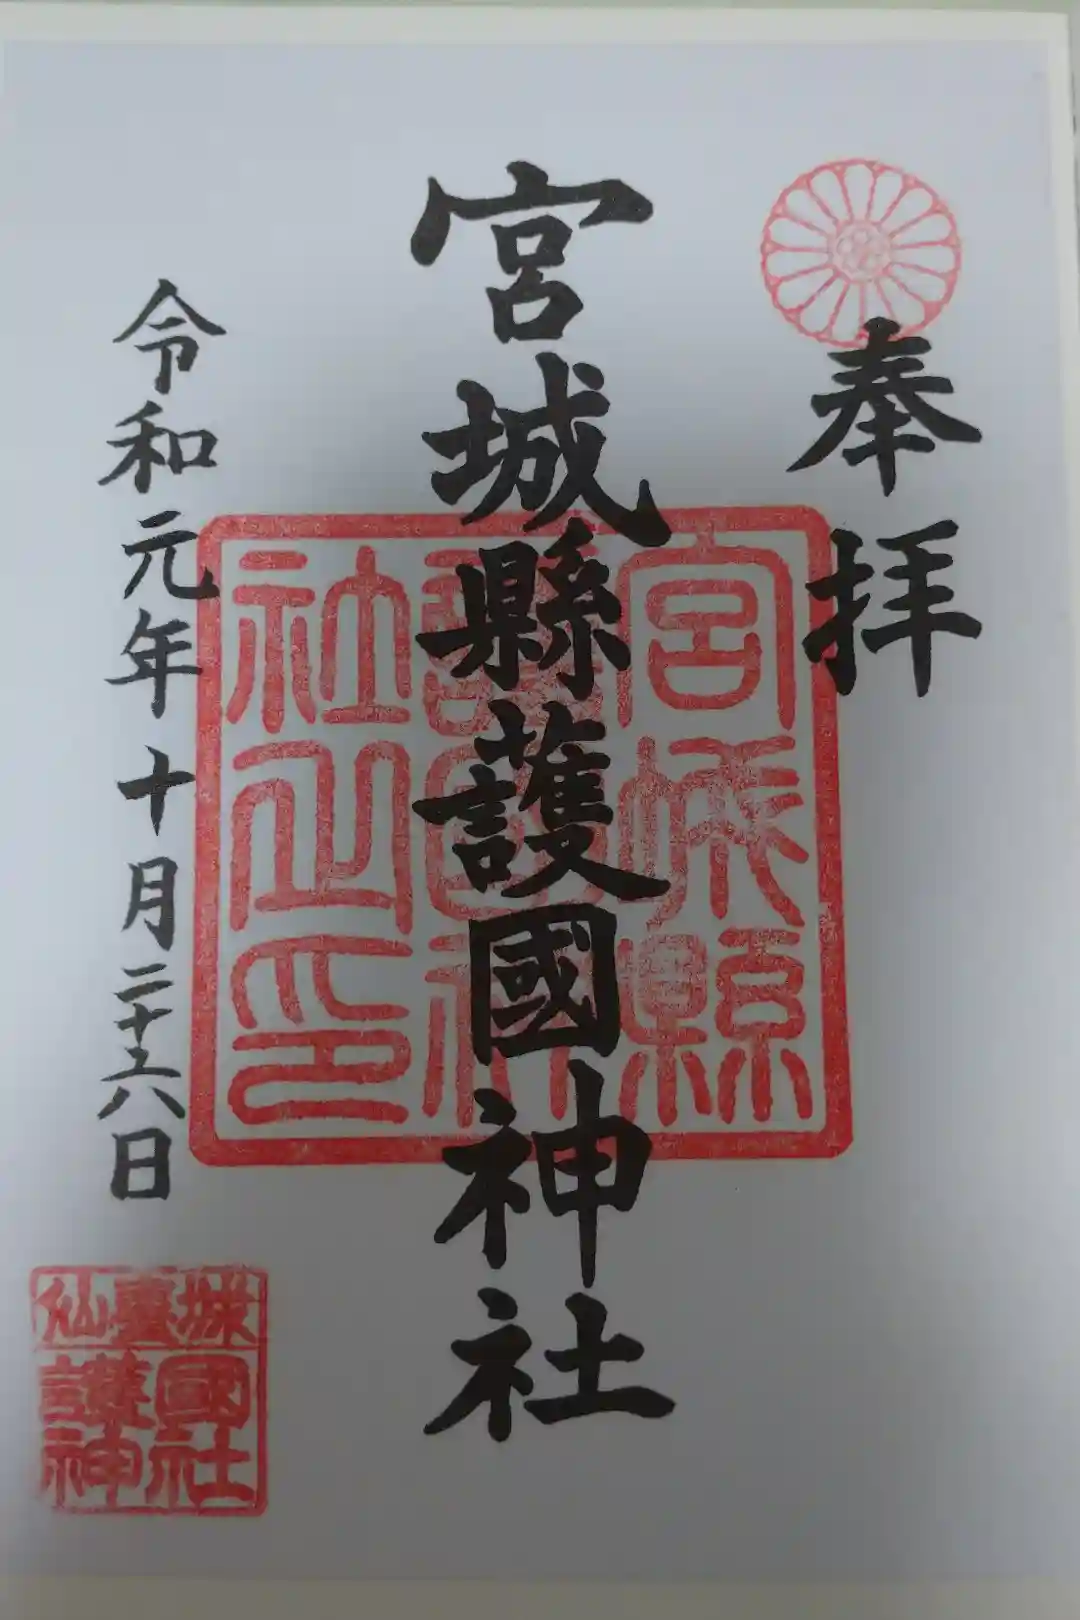 奉拝
宮城縣護國神社
宮城縣
護國神
社之印
令和元年十月二十六日
仙臺城
護國
神社